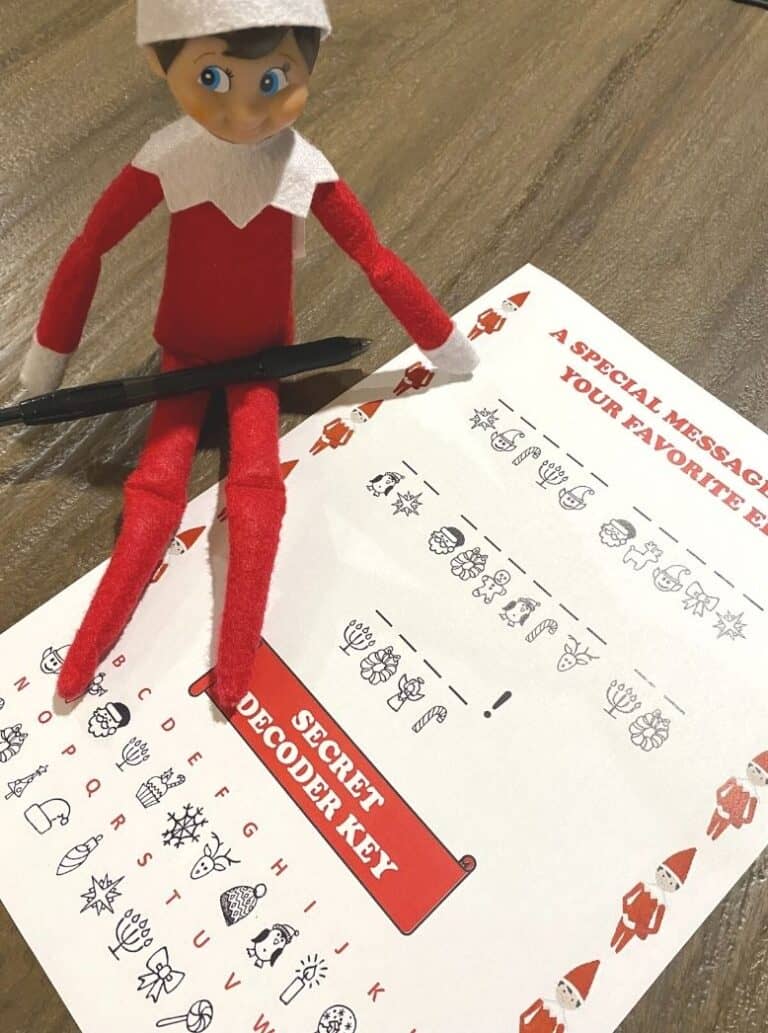 A SPECIAL MESSAGE
YOUR FAVORITE
!
SECRET
DECODER KEY
B C D E F G H I J K
N O P Q R S T U V W